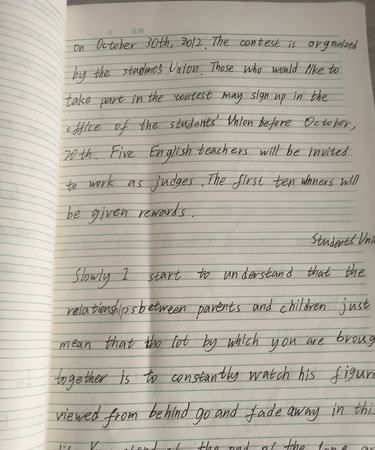 on October 30th, 2012. The contest is organized
by the students Union. Those who would like to
take part in the contest may sign up in the
office of the students' Union before October,
20th. Five English teachers will be invited
to work as judges. The first ten winners will
be given rewards.
Students' Uni
Slowly I start to understand that the
relationships between parents and children just
mean that the lot by which you are broug
together is to constantly watch his figure
viewed from behind go and fade away in thi
the end of the lane